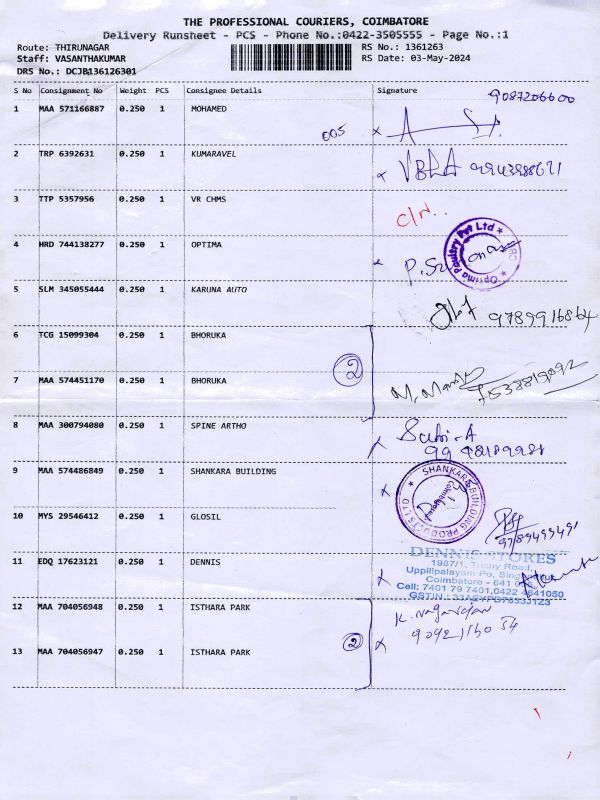 THE PROFESSIONAL COURIERS, COIMBATORE
Delivery Runsheet - PCS - Phone No.:0422-3505555 - Page No.:1
Route: THIRUNAGAR
Staff: VASANTHAKUMAR
DRS No.: DCJB136126301
RS No.: 1361263
RS Date: 03-May-2024
S No Consignment No Weight PCS Consignee Details Signature
9087206600
1 MAA 571166887 0.250 1 MOHAMED
005
2 TRP 6392631 0.250 1 KUMARAVEL
3 TTP 5357956 0.250 1 VR CHMS
4 HRD 744138277 0.250 1 OPTIMA
Optima Poultry Pvt Ltd
5 SLM 345055444 0.250 1 KARUNA AUTO
9789916864
6 TCG 15099304 0.250 1 BHORUKA
2
7 MAA 574451170 0.250 1 BHORUKA
8 MAA 300794080 0.250 1 SPINE ARTHO
9 MAA 574486849 0.250 1 SHANKARA BUILDING
SHANKARA BUILDING PRODUCTS LTD
Coimbatore
10 MYS 29546412 0.250 1 GLOSIL
9789499491
11 EDQ 17623121 0.250 1 DENNIS
DENNIS STORES
1987/1, Trichy Road,
Uppilipalayam Po,
Coimbatore - 641
Cell: 7401 79 7401,0422
12 MAA 704056948 0.250 1 ISTHARA PARK
K. Nagarajan
2
13 MAA 704056947 0.250 1 ISTHARA PARK